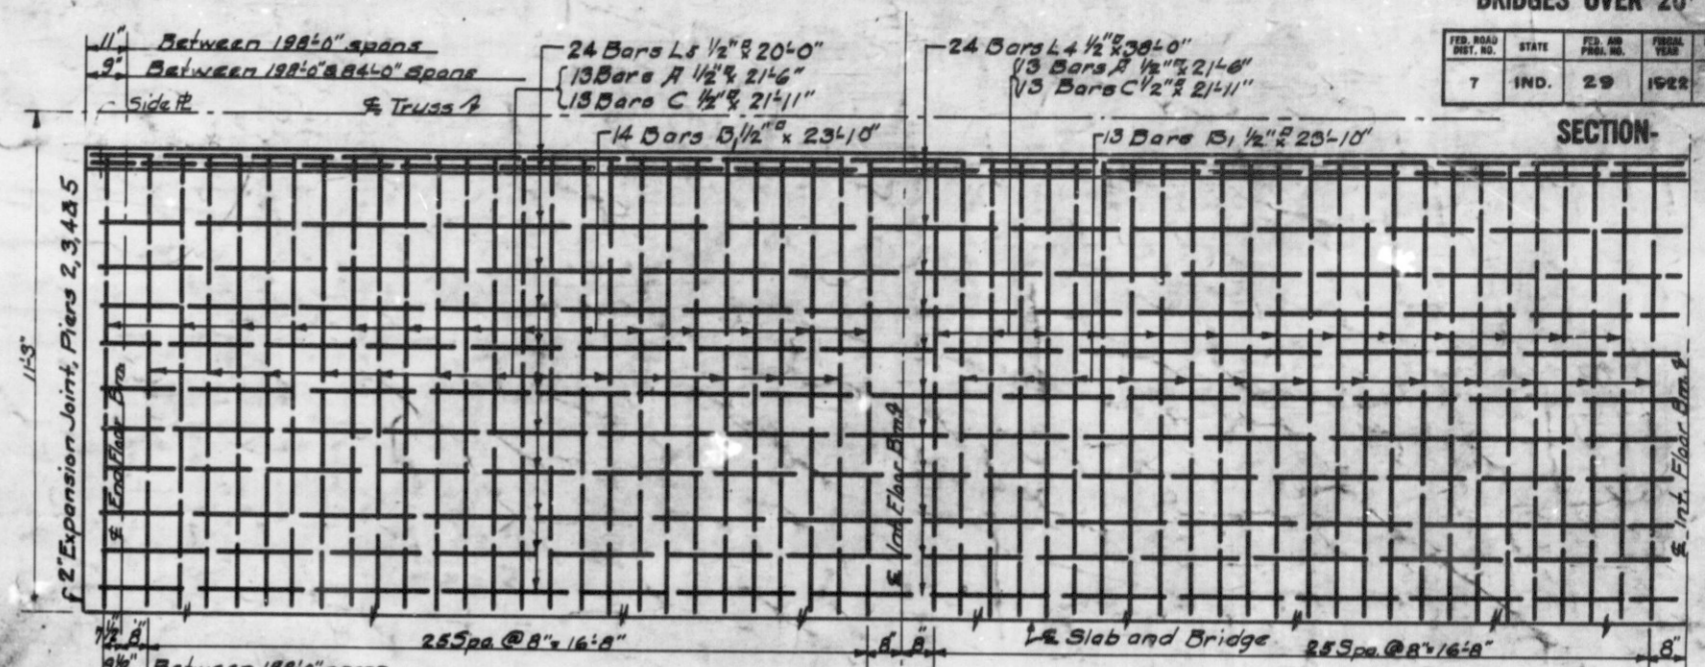 BRIDGES OVER 20'
FED. ROAD DIST. NO. STATE FED. AID PROJ. NO. FISCAL YEAR
7 IND. 29 1922
SECTION-
11" Between 198'-0" spans
9" Between 198'-0" & 84'-0" Spans
Side ℄ Truss
24 Bars L5 1/2" x 20'-0"
13 Bars A 1/2" x 21'-6"
13 Bars C 1/2" x 21'-11"
14 Bars B1 1/2" x 23'-10"
24 Bars L4 1/2" x 38'-0"
13 Bars A 1/2" x 21'-6"
13 Bars C 1/2" x 21'-11"
13 Bars B1 1/2" x 23'-10"
11'-3"
2" Expansion Joint, Piers 2, 3, 4 & 5
℄ End Floor Bm.
℄ Int. Floor Bm.
℄ Int. Floor Bm.
7 1/2" 8" 25 Spa. @ 8" = 16'-8" 8" 8" ℄ Slab and Bridge 25 Spa. @ 8" = 16'-8" 8"
9 1/2" Between 198'-0" spans